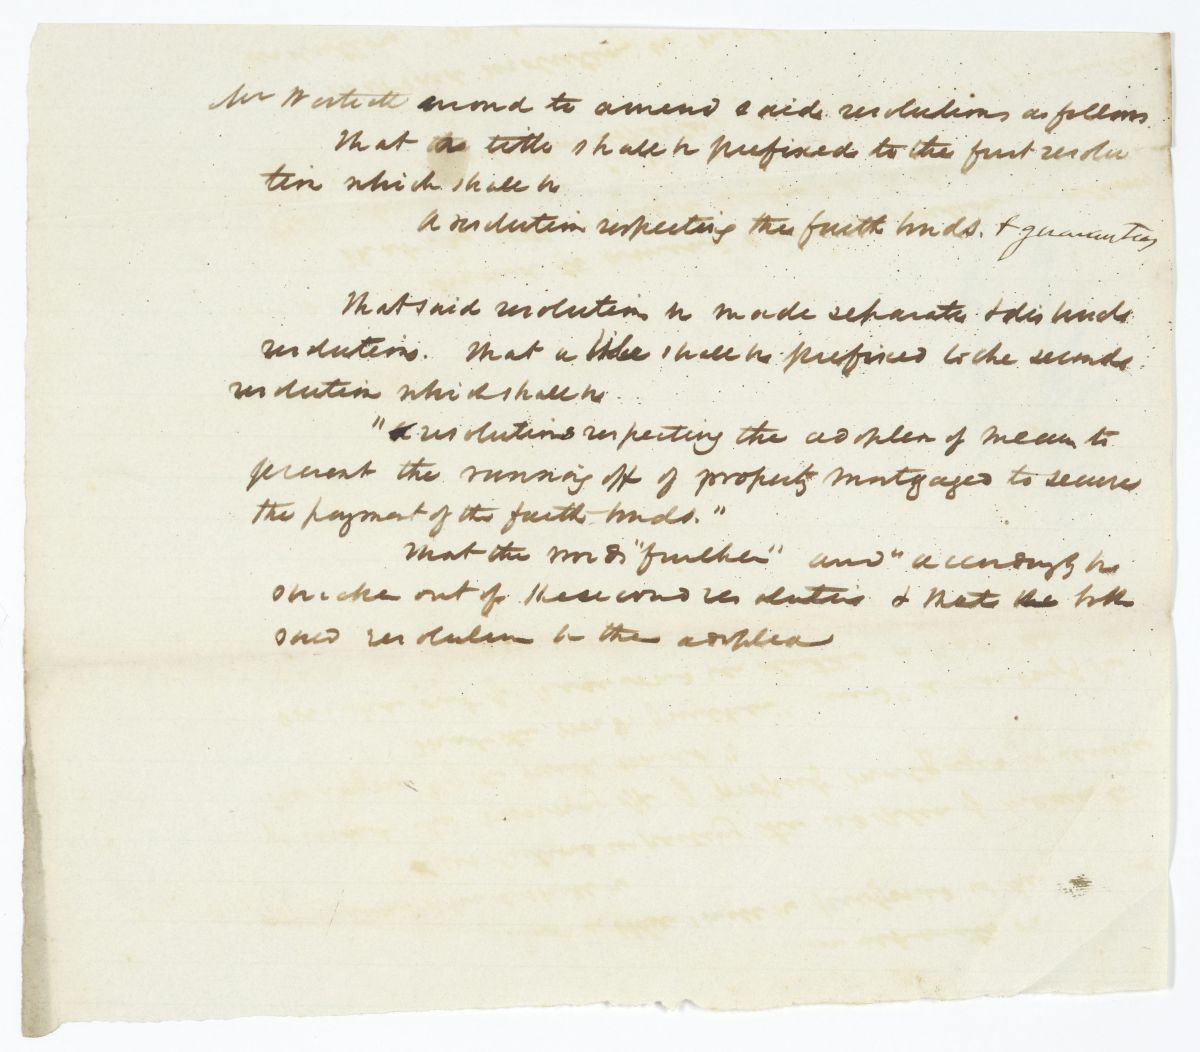 Mr moved to amend said resolutions as follows
That title shall be prefixed to the first resolu
tion which shall be
A resolution respecting the faith bonds. & guaranties
That said resolutions be made separate & distinct
resolutions. That a title shall be prefixed to the second
resolution which shall be
"A resolution respecting the adoption of means to
prevent the running off of property mortgaged to secure
the payment of the faith bonds."
That the words "further" and "accordingly be
stricken out of the second resolution & that both
said resolution be adopted